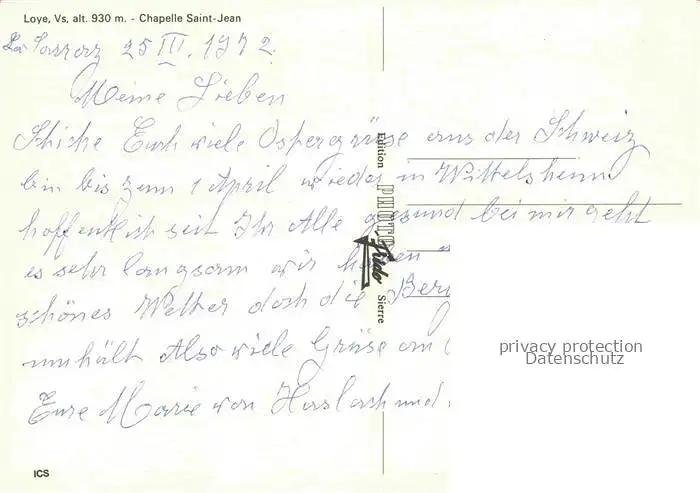 Loye, Vs, alt. 930 m. - Chapelle Saint-Jean
La Sarraz 25 III. 1972.
Meine Lieben
Shike Euch viele Ostergrüse aus der Schweiz
bin bis zum 1 April wieder in Wittelsheim
hoffentlich seit Ihr Alle gesund bei mir geht
es sehr langsam wir haben
schönes Wetter doch die Ber
umhält Also viele Grüse an
Eure Marie von Haslach und
Edition PHOTO Frido Sierre
privacy protection
Datenschutz
ICS